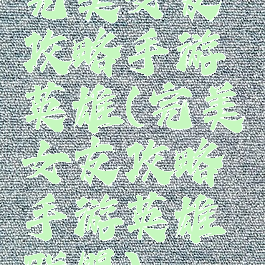 攻略手游
英雄(完美
女友攻略
手游英雄